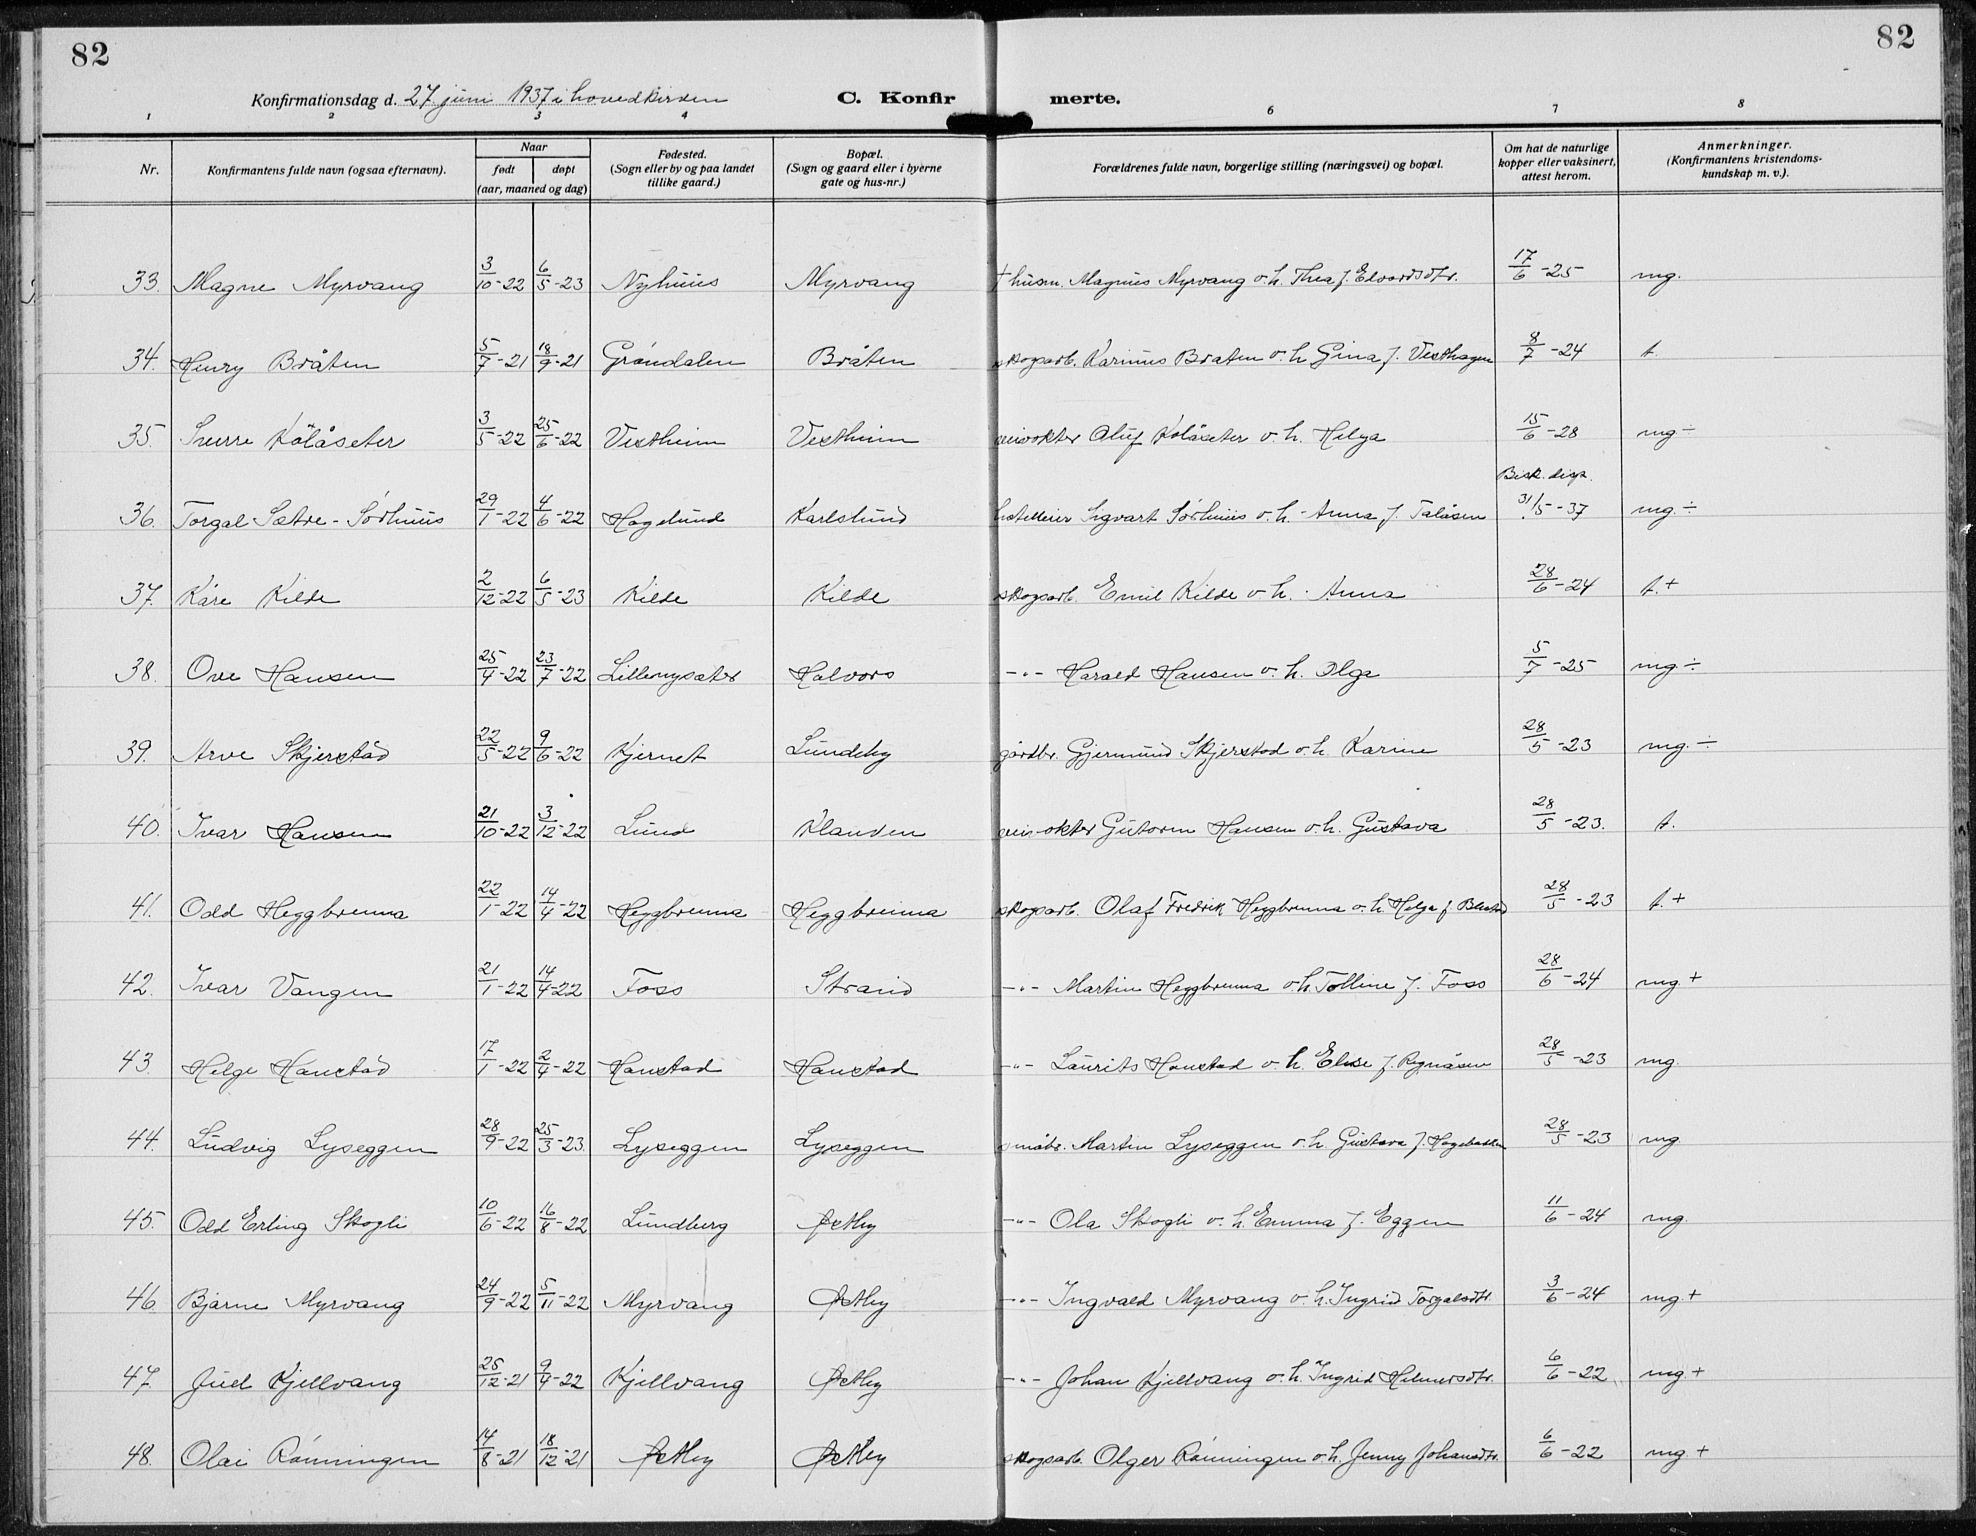 82
82
Konfirmationsdag d. 27. juni 1937 i hovedkirken
C. Konfir merte.
1 2 3 4 6 7 8
Nr.
Konfirmantens fulde navn (ogsaa efternavn).
Naar
født døpt
(aar, maaned og dag)
Fødested.
(Sogn eller by og paa landet
tillike gaard.)
Bopæl.
(Sogn og gaard eller i byerne
gate og hus-nr.)
Forældrenes fulde navn, borgerlige stilling (næringsvei) og bopæl.
Om hat de naturlige
kopper eller vaksinert,
attest herom.
Anmerkninger.
(Konfirmantens kristendoms-
kundskap m. v.).
33. Magne Myrvang 3/10-22 6/5-23 Nyhuus Myrvang † husm. Magnus Myrvang o. h. Thea f. Edvardsdtr. 17/6-25 mg.
34. Henry Bråten 5/7-21 18/9-21 Gröndalen Bråten skogsarb. Karinus Braten o. h. Gina f. Vesthagen 8/7-24 t.
35. Sverre Kölåseter 3/5-22 25/6-22 Vestheim Vestheim Oluf Kölåseter o. h. Helga 15/6-28 mg ÷
Bisk. disp.
36. Torgal Sætre-Sörhuus 29/1-22 4/6-22 Hagelund Karlslund Sigvart Sörhuus o. h. Anna f. Talåsen 31/5-37 mg. ÷
37. Kåre Kilde 2/12-22 6/5-23 Kilde Kilde skogsarb. Emil Kilde o h. Anna 28/6-24 t. +
38. Ove Hansen 25/4-22 23/7-22 Lillemysæter Halvors -"- Harald Hansen o. h. Olga 5/7-25 mg ÷
39. Arve Skjerstad 22/5-22 9/6-22 Kjernet Lundeby gårdbr. Gjermund Skjerstad o. h. Karine 28/5-23 mg. ÷
40. Ivar Hansen 21/10-22 3/12-22 Lund Klanden Gutorm Hansen o. h. Gustava 28/5-23. t.
41. Odd Heggbrenna 22/1-22 14/4-22 Heggbrenna Heggbrenna skogsarb. Olaf Fredrik Heggbrenna o. h. Helga f. 28/5-23 t. +
42. Ivar Vangen 21/1-22 14/4-22 Foss Strand -"- Martin Heggbrenna o h. Tolline f. Foss 28/6-24 mg. +
43. Helge Hanstad 17/1-22 2/4-22 Hanstad Hanstad -"- Laurits Hanstad o. h. Elise f. Rognåsen 28/5-23 mg.
44. Ludvig Lyseggen 28/9-22 25/3-23. Lyseggen Lyseggen småbr. Martin Lyseggen o. h. Gustava f. Hagebakken 28/5-23 mg
45. Odd Erling Skogli 10/6-22 16/8-22 Lundberg Østby -"- Ola Skogli o. h. Emma f. Eggen 11/6-24 mg.
46. Bjarne Myrvang 24/9-22 5/11-22 Myrvang Østby -"- Ingvald Myrvang o. h. Ingrid Torgalsdtr. 3/6-24 mg. +
47. Juel Kjellvang 25/12-21 9/4-22 Kjellvang Østby -"- Johan Kjellvang o. h. Ingrid Helmersdtr. 6/6-22 mg +
48. Olai Rönningen 14/8-21 18/12-21 Østby Østby skogsarb. Olger Rönningen o h. Jenny Johansdtr. 6/6-22 mg +